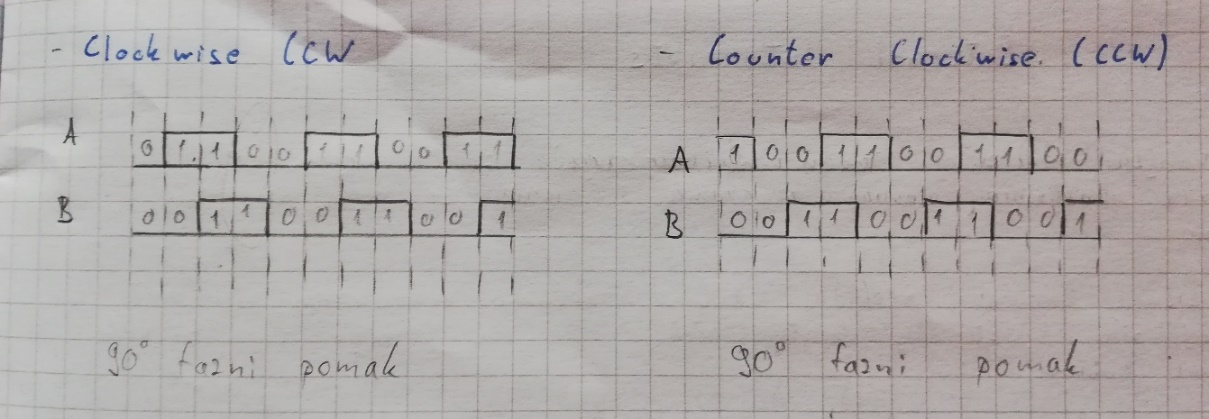 - Clockwise (CW
A 0 1 1 0 0 1 1 0 0 1 1
B 0 0 1 1 0 0 1 1 0 0 1
90° fazni pomak
- Counter Clockwise. (CCW)
A 1 0 0 1 1 0 0 1 1 0 0
B 0 0 1 1 0 0 1 1 0 0 1
90° fazni pomak